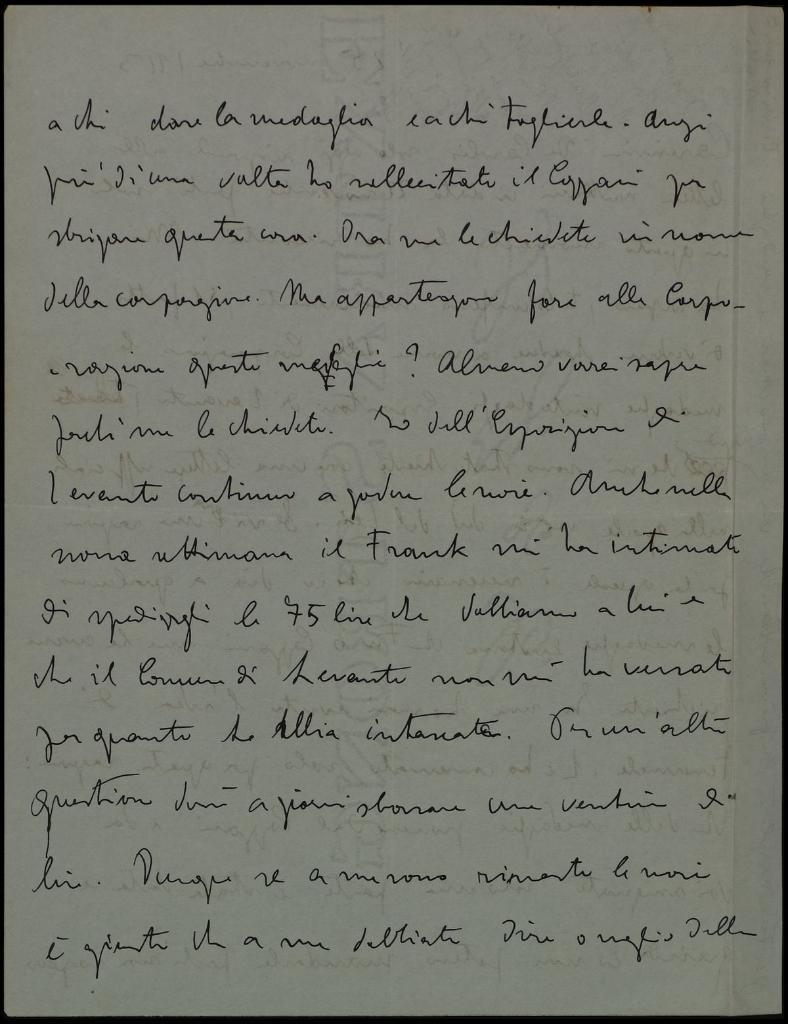 a chi dare la medaglia e a chi toglierle. Anzi
più di una volta ho sollecitato il Cozzani per
sbrigare questa cosa. Ora me le chiedete in nome
della corporazione. Ma appartengono forse alla Corpo-
razione queste medaglie? Almeno vorrei sapere
perché me le chiedete. Io dell'Esposizione di
Levanto continuo a godere le noie. Anche nella
scorsa settimana il Frank mi ha intimato
di spedirgli le 75 lire che dobbiamo a lui e
che il Comune di Levanto non mi ha versato
per quanto le abbia intascate. Per un'altra
questione dovrò a giorni sborsare una ventina di
lire. Dunque se a me sono rimaste le noie
è giusto che a me dobbiate dire o meglio della